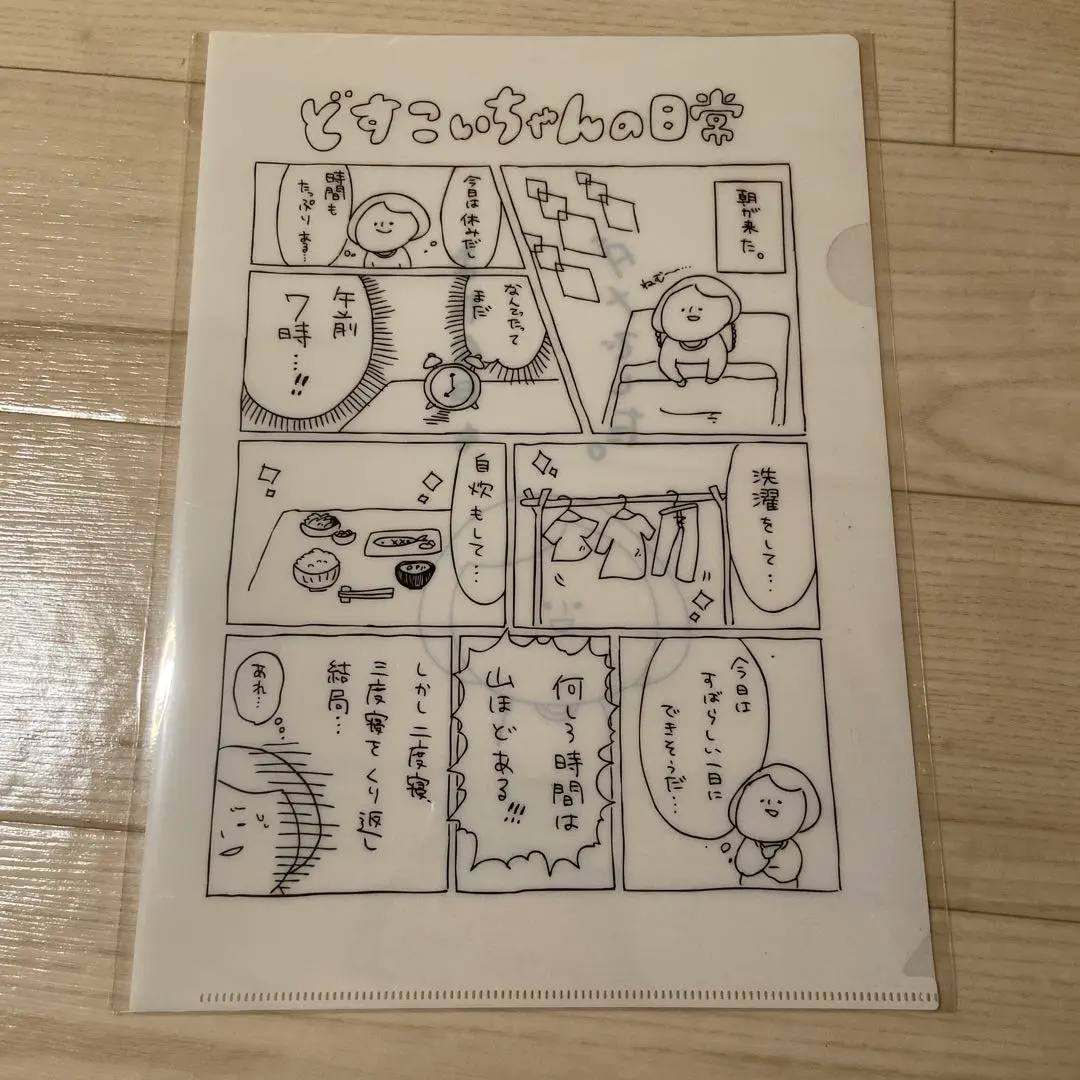 どすこいちゃんの日常
朝が来た。
ねむ〜…
今日は休みだし
時間も
たっぷりある…
なんてったって
まだ
午前
7時…!!
洗濯をして…
自炊もして…
今日は
すばらしい一日に
できそうだ…
何しろ時間は
山ほどある!!!
しかし二度寝
三度寝をくり返し
結局…
あれ…